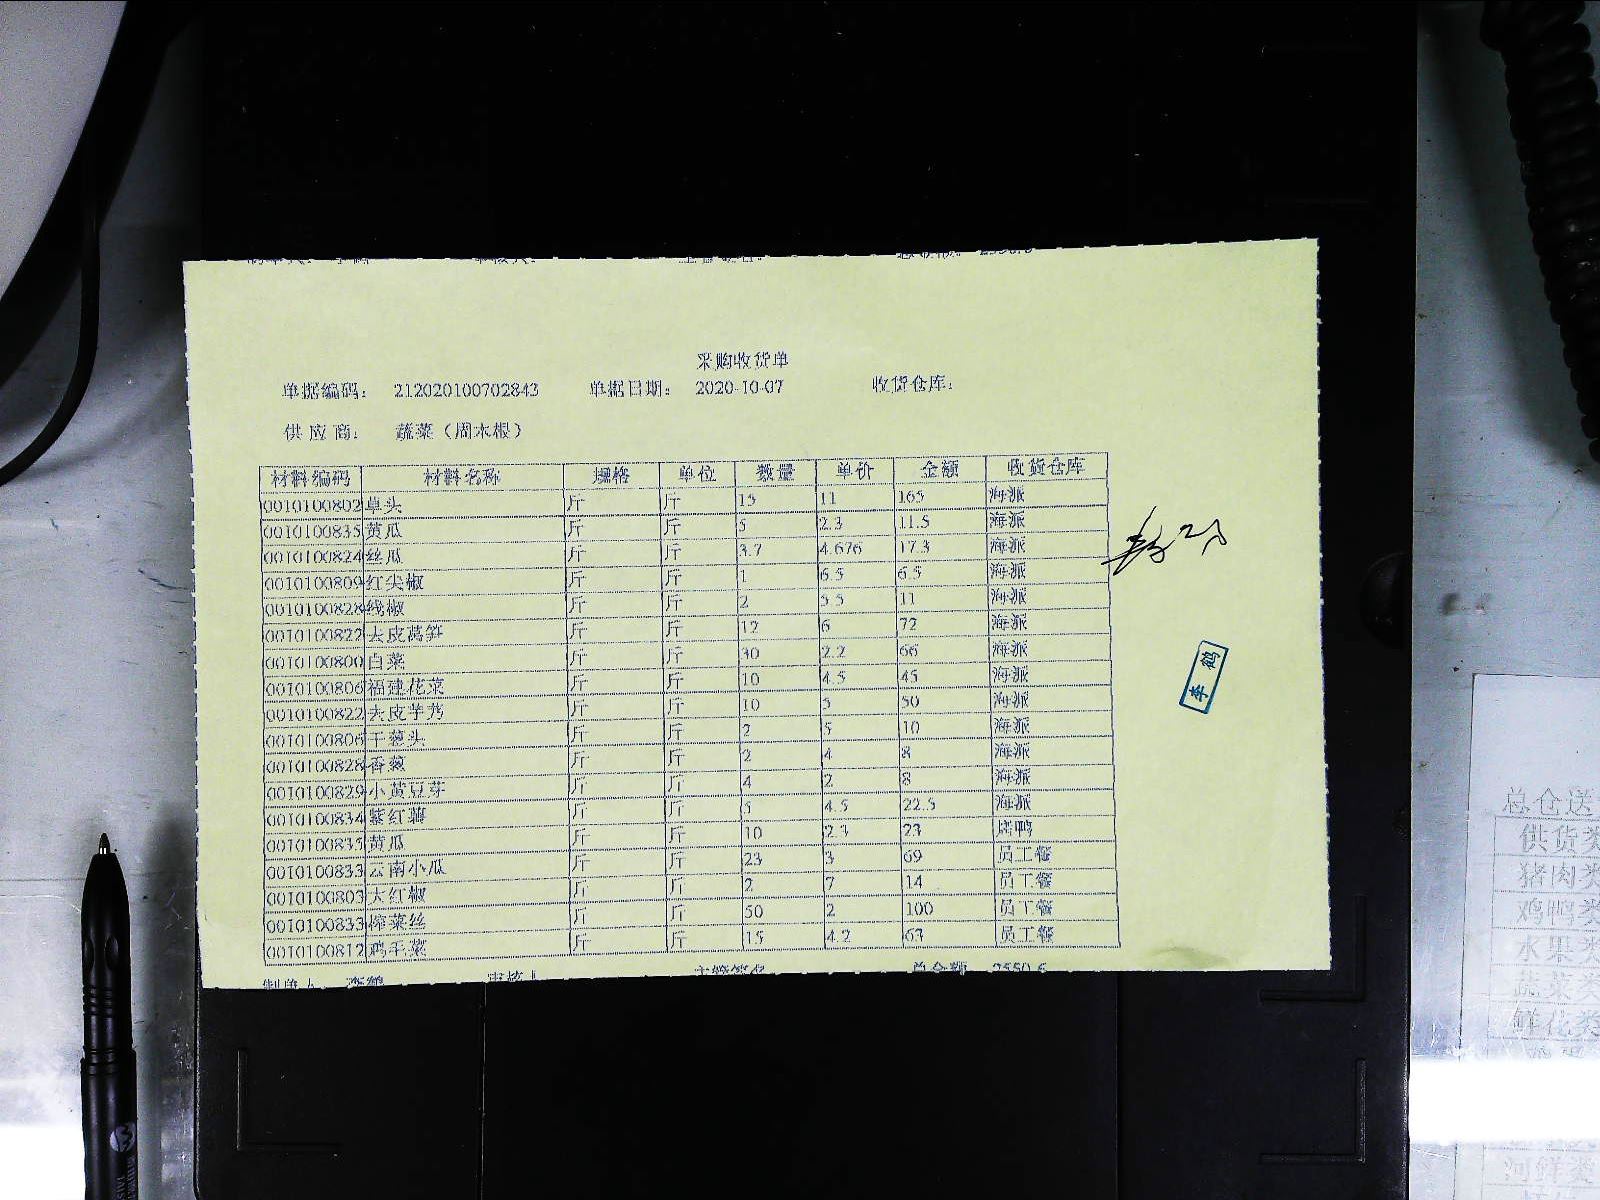 采购收货单
单据编码: 212020100702843 单据日期: 2020-10-07 收货仓库:
供应商: 蔬菜(周木根)
材料编码 材料名称 规格 单位 数量 单价 金额 收货仓库
0010100802 草头 斤 斤 15 11 165 海派
0010100835 黄瓜 斤 斤 5 2.3 11.5 海派
0010100824 丝瓜 斤 斤 3.7 4.676 17.3 海派
0010100809 红尖椒 斤 斤 1 6.5 6.5 海派
0010100828 线椒 斤 斤 2 5.5 11 海派
0010100822 去皮莴笋 斤 斤 12 6 72 海派
0010100800 白菜 斤 斤 30 2.2 66 海派
0010100806 福建花菜 斤 斤 10 4.5 45 海派
0010100822 去皮芋艿 斤 斤 10 5 50 海派
0010100806 干葱头 斤 斤 2 5 10 海派
0010100828 香葱 斤 斤 2 4 8 海派
0010100829 小黄豆芽 斤 斤 4 2 8 海派
0010100834 紫红薯 斤 斤 5 4.5 22.5 海派
0010100835 黄瓜 斤 斤 10 2.3 23 烤鸭
0010100833 云南小瓜 斤 斤 23 3 69 员工餐
0010100803 大红椒 斤 斤 2 7 14 员工餐
0010100833 榨菜丝 斤 斤 50 2 100 员工餐
0010100812 鸡毛菜 斤 斤 15 4.2 63 员工餐
李鹤
总仓送
供货类
猪肉类
鸡鸭类
水果类
蔬菜类
鲜花类
河鲜类